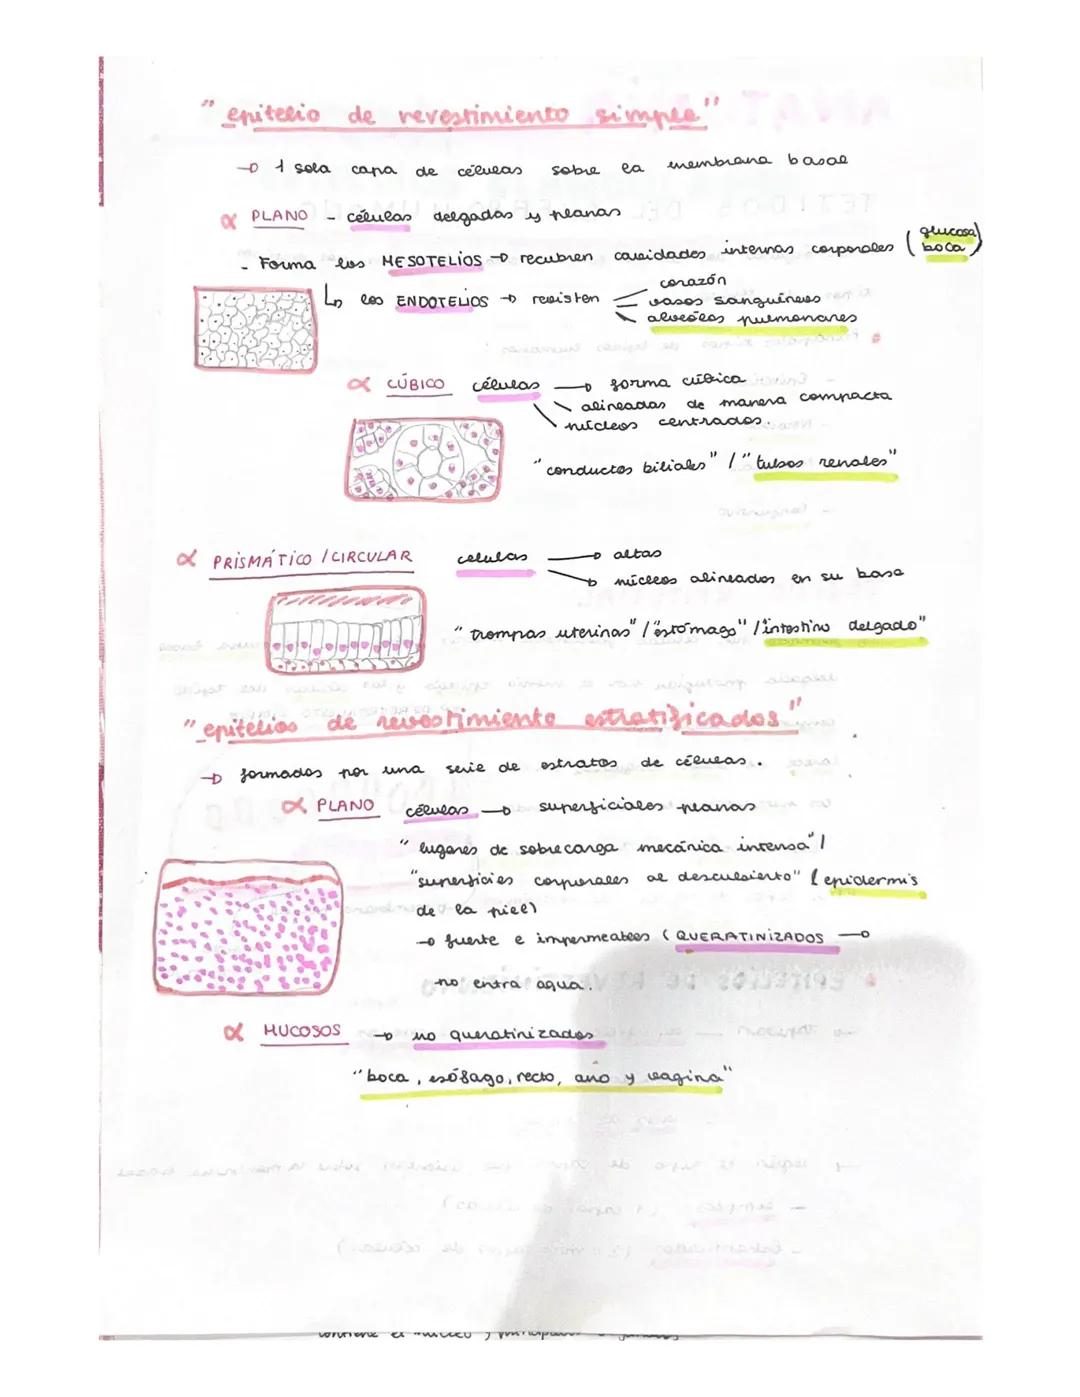 "epitelio de revestimiento simple"
→ 1 sola capa de células sobre la membrana basal
α PLANO - células delgadas y planas
- Forma los MESOTELIOS → recubren cavidades internas corporales (glucosa boca)
↳ los ENDOTELIOS → revisten
corazón
vasos sanguíneos
alveólos pulmonares
α CÚBICO células → forma cúbica
alineadas de manera compacta
núcleos centrados.
"conductos biliales" / "tubos renales"
α PRISMÁTICO / CIRCULAR celulas → altas
→ núcleos alineados en su base
"trompas uterinas" / "estómago" / "intestino delgado"
"epitelios de revestimiento estratificados"
→ formados por una serie de estratos de células.
α PLANO células → superficiales planas
"lugares de sobrecarga mecánica intensa" /
"superficies corporales al descubierto" (epidermis
de la piel)
→ fuerte e impermeables (QUERATINIZADOS →
no entra agua.
α MUCOSOS → no queratinizados
"boca, esófago, recto, ano y vagina"